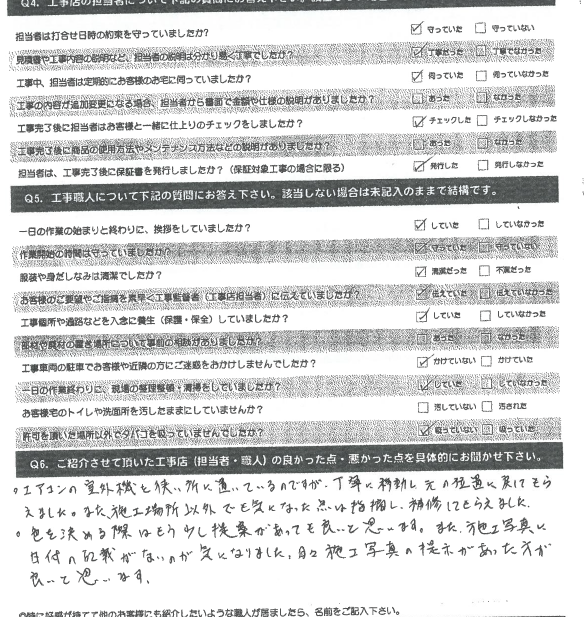 Q4. 工事店の担当者について下記の質問にお答え下さい。
担当者は打合せ日時の約束を守っていましたか? ☑ 守っていた □ 守っていない
見積書や工事内容の説明など、担当者の説明は分かり易く丁寧でしたか? ☑ 丁寧だった □ 丁寧でなかった
工事中、担当者は定期的にお客様のお宅に伺っていましたか? ☑ 伺っていた □ 伺っていなかった
工事の内容が追加変更になる場合、担当者から書面で金額や仕様の説明がありましたか? □ あった □ なかった
工事完了後に担当者はお客様と一緒に仕上りのチェックをしましたか? ☑ チェックした □ チェックしなかった
工事完了後に商品の使用方法やメンテナンス方法などの説明がありましたか? □ あった □ なかった
担当者は、工事完了後に保証書を発行しましたか?(保証対象工事の場合に限る) ☑ 発行した □ 発行しなかった
Q5. 工事職人について下記の質問にお答え下さい。該当しない場合は未記入のままで結構です。
一日の作業の始まりと終わりに、挨拶をしていましたか? ☑ していた □ していなかった
作業開始の時間は守っていましたか? ☑ 守っていた □ 守っていない
服装や身だしなみは清潔でしたか? ☑ 清潔だった □ 不潔だった
お客様のご要望やご指摘を素早く工事監督者(工事店担当者)に伝えていましたか? ☑ 伝えていた □ 伝えていなかった
工事個所や通路などを入念に養生(保護・保全)していましたか? ☑ していた □ していなかった
部材や廃材の置き場所について事前の相談がありましたか? □ あった □ なかった
工事車両の駐車でお客様や近隣の方にご迷惑をおかけしませんでしたか? ☑ かけていない □ かけていた
一日の作業終わりに、現場の整理整頓・清掃をしていましたか? ☑ していた □ していなかった
お客様宅のトイレや洗面所を汚したままにしていませんか? □ 汚していない □ 汚された
許可を頂いた場所以外でタバコを吸っていませんでしたか? ☑ 吸っていない □ 吸っていた
Q6. ご紹介させて頂いた工事店(担当者・職人)の良かった点・悪かった点を具体的にお聞かせ下さい。
・エアコンの室外機を狭い所に置いているのですが、丁寧に移動し元の位置に戻してもら
えました。また、施工場所以外でも気になった点は指摘し、補修してもらえました。
・色を決める際はもう少し提案があっても良いと思います。また、施工写真に
日付の記載がないのが気になりました。日々施工写真の提示があった方が
良いと思います。
Q特に好感が持てて他のお客様にも紹介したいような職人が居ましたら、名前をご記入下さい。